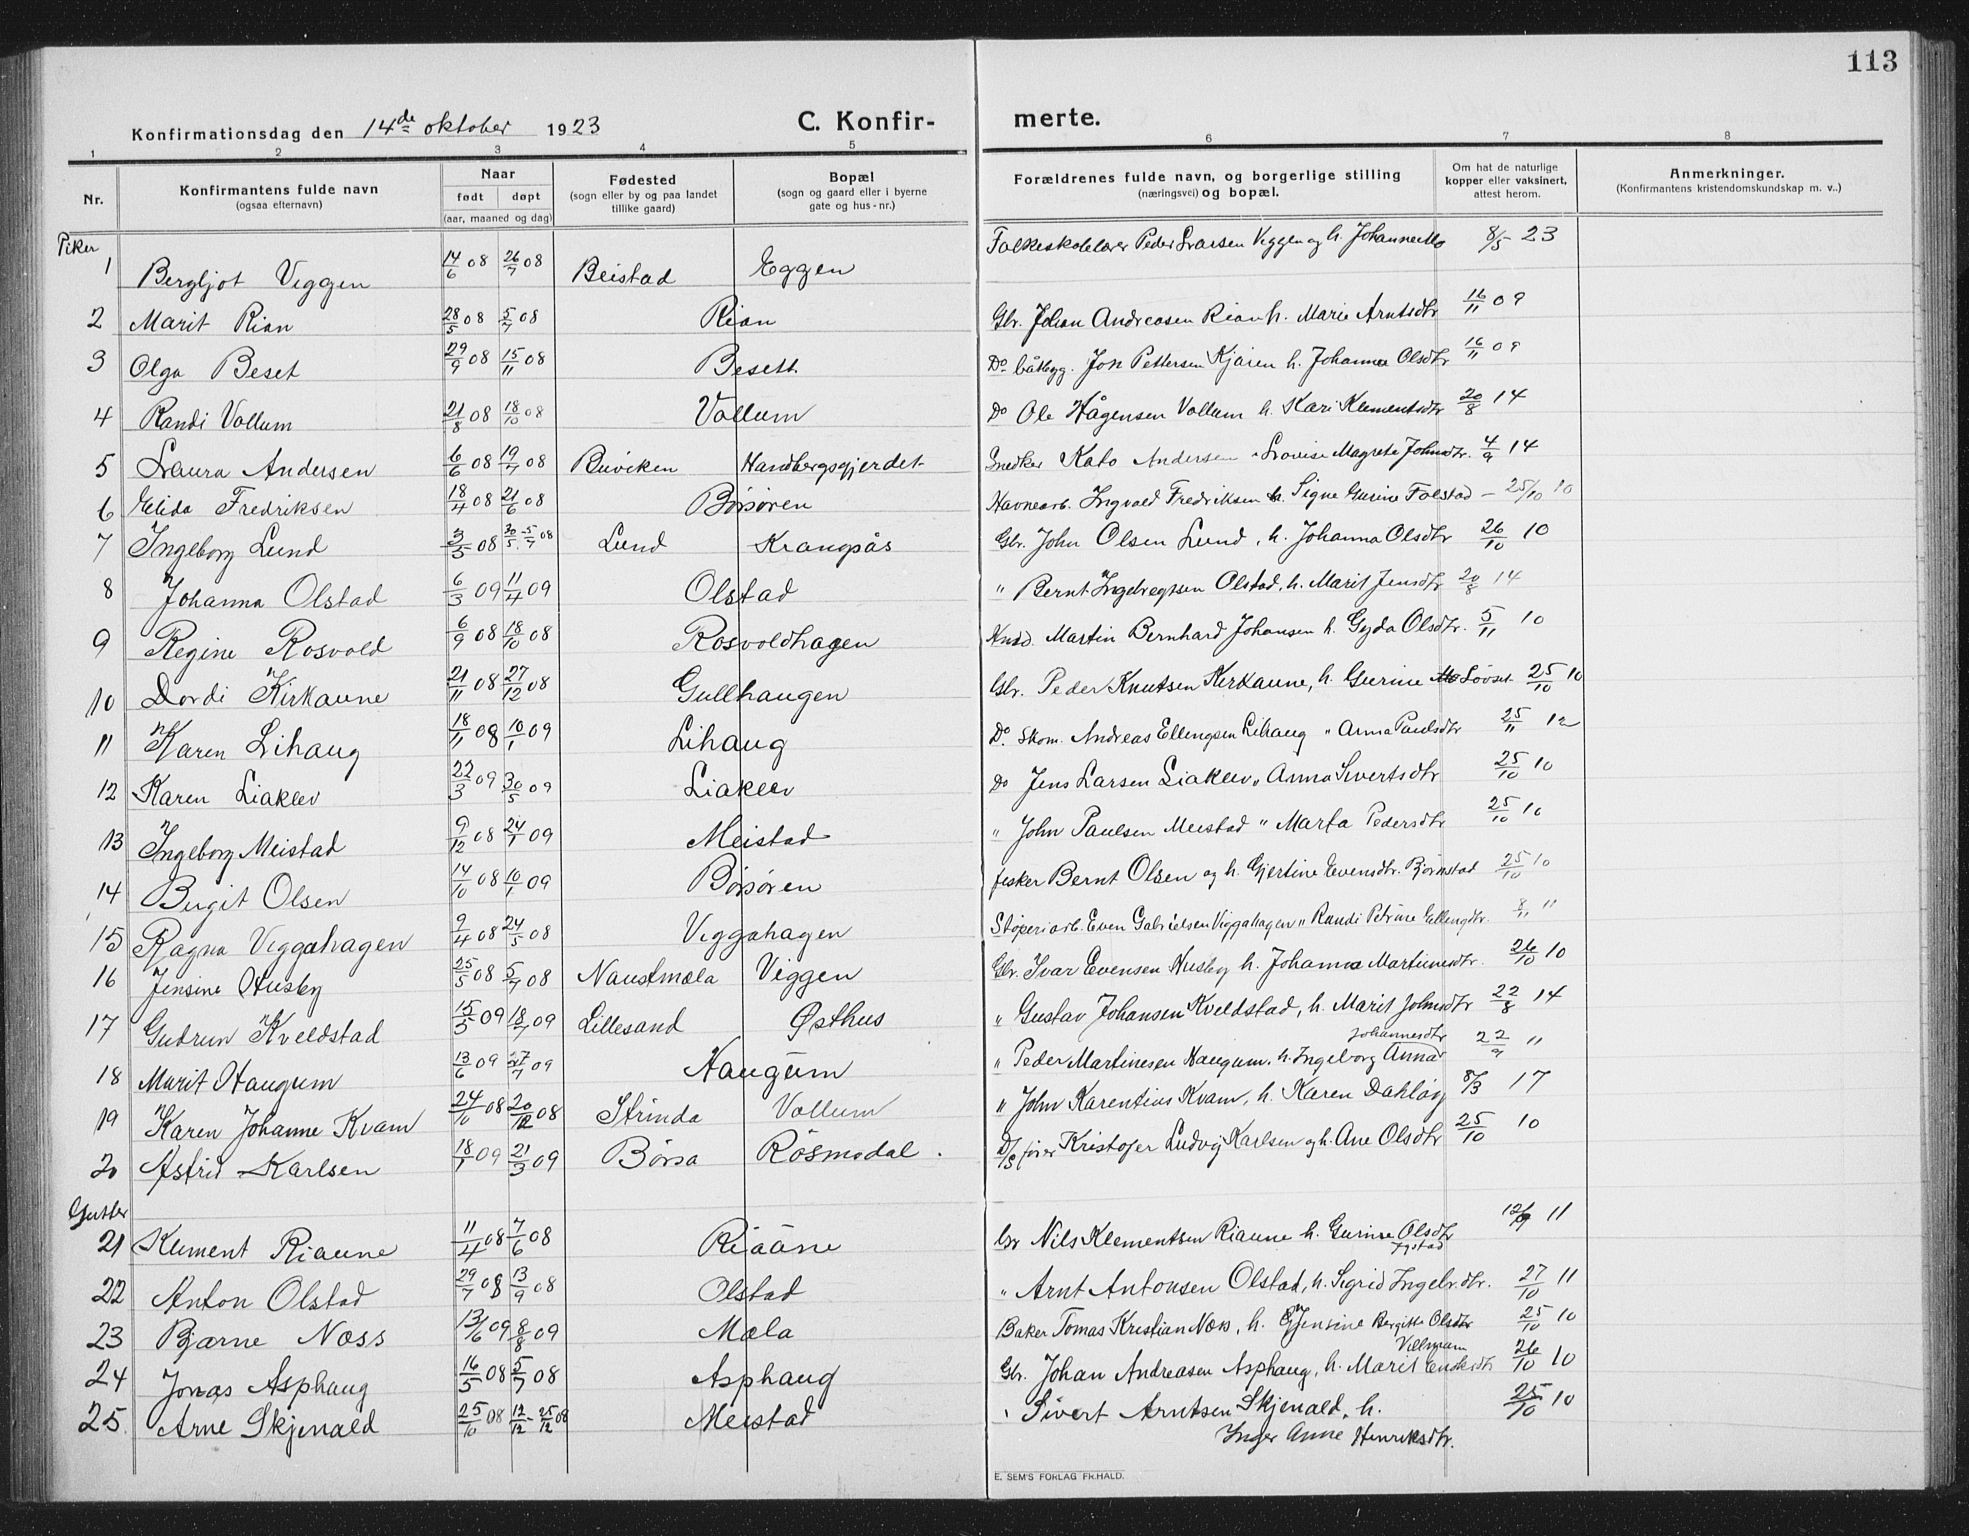 113
Konfirmationsdag den 14de oktober 1923 C. Konfir- merte.
1 2 3 4 5 6 7 8
Nr. Konfirmantens fulde navn (ogsaa efternavn) Naar født døpt (aar, maaned og dag) Fødested (sogn eller by og paa landet tillike gaard) Bopæl (sogn og gaard eller i byerne gate og hus-nr.) Forældrenes fulde navn, og borgerlige stilling (næringsvei) og bopæl. Om hat de naturlige kopper eller vaksinert, attest herom. Anmerkninger. (Konfirmantens kristendomskundskap m. v..)
Piker
1 Bergljot Viggen 14/6 08 26/7 08 Beistad Eggen Folkeskolelærer Peder Larsen Viggen og h. Johanne Mo 8/5 23
2 Marit Rian 28/5 08 5/7 08 Rian Gbr. Johan Andreasen Rian h. Marie Arntsdtr 16/11 09
3 Olga Beset 29/9 08 15/11 08 Besett Do båtbyg. Jon Pettersen Kjären h. Johanna Olsdtr 16/11 09
4 Randi Vollum 21/8 08 18/10 08 Vollum Do Ole Hågensen Vollum h. Kari Klementsdtr 20/8 14
5 Laura Andersen 6/6 08 19/7 08 Buviken Handbergsgjerdet Snedker Kato Andersen " Lovise Magrete Johnsdtr. 4/9 14
6 Elida Fredriksen 18/4 08 21/6 08 Børsøren Havnearb. Ingvald Fredriksen h. Signe Gurine Folstad - 25/10 10
7 Ingeborg Lund 3/5 08 30/5 - 5/7 08 Lund Krangsås Gbr. John Olsen Lund, h. Johanna Olsdtr 26/10 10
8 Johanna Olstad 6/3 09 11/4 09 Olstad " Bernt Ingebregtsen Olstad, h. Marit Jensdtr 20/8 14
9 Regine Rosvold 6/9 08 18/10 08 Rosvoldhagen Martin Bernhard Johansen h. Gyda Olsdtr. 5/11 10
10 Dordi Kirkaune 21/11 08 27/12 08 Gullhaugen Gbr. Peder Knutsen Kirkaune, h. Gurine Løvset 25/10 10
11 Karen Lihaug 18/11 08 10/1 09 Lihaug Do. Skom. Andreas Ellengsen Lihaug " Anna Paulsdtr 25/11 12
12 Karen Liaklev 22/3 09 30/5 09 Liaklev Do Jens Larsen Liaklev " Anna Sivertsdtr 25/10 10
13 Ingeborg Meistad 9/12 08 24/1 09 Meistad " John Paulsen Meistad " Marta Pedersdtr 25/10 10
14 Birgit Olsen 14/10 08 10/1 09 Børsøren fisker Bernt Olsen og h. Gjertine Evensdtr. Bjørnstad 25/10 10
15 Ragna Viggahagen 9/4 08 24/5 08 Viggahagen Støperiarb. Even Gabrielsen Viggahagen " Randi Petrine Ellengdtr. 8/11 "
16 Jensine Husby 25/5 08 5/7 08 Naustmæla Viggen Gbr. Ivar Evensen Husby h. Johanna Martinesdtr. 26/10 10
17 Gudrun Kveldstad 15/5 09 18/7 09 Lillesand Østhus " Gustav Johansen Kveldstad, h. Marit Johnsdtr 22/8 14
18 Marit Haugum 13/6 09 27/7 09 Haugum " Peder Martinesen Haugum, h. Ingeborg Anna Johannesdtr 22/9 "
19 Karen Johanne Kvam 24/10 08 20/12 08 Strinda Vollum " John Karentius Kvam, h. Karen Dahløy 8/3 17
20 Astrid Karlsen 18/1 09 21/3 09 Børsa Rösmodal. D/S fører Kristofer Ludvig Karlsen og h. Ane Olsdtr 25/10 10
Gutter
21 Klement Riaune 11/4 08 7/6 08 Riaune Gbr Nils Klementsen Riaune h. Gurine Olsdtr 12/9 11
22 Anton Olstad 29/7 08 13/9 08 Olstad " Arnt Antonsen Olstad, h. Sigrid Ingebr.dtr. 27/10 11
23 Bjarne Næss 13/6 09 8/8 09 Mæla Baker Tomas Kristian Næss, h. Jensine Bergitte Olsdtr 25/10 10
Villmann
24 Jonas Asphaug 16/5 08 5/7 08 Asphaug Gbr. Johan Andreasen Asphaug, h. Marit 26/10 10
25. Arne Skjenald 25/10 08 12/12 - 25/12 08 Meistad " Sivert Arntsen Skjenald, h. 25/10 10
Inger Anne Henriksdtr.
E. SEM'S FORLAG FR.HALD.